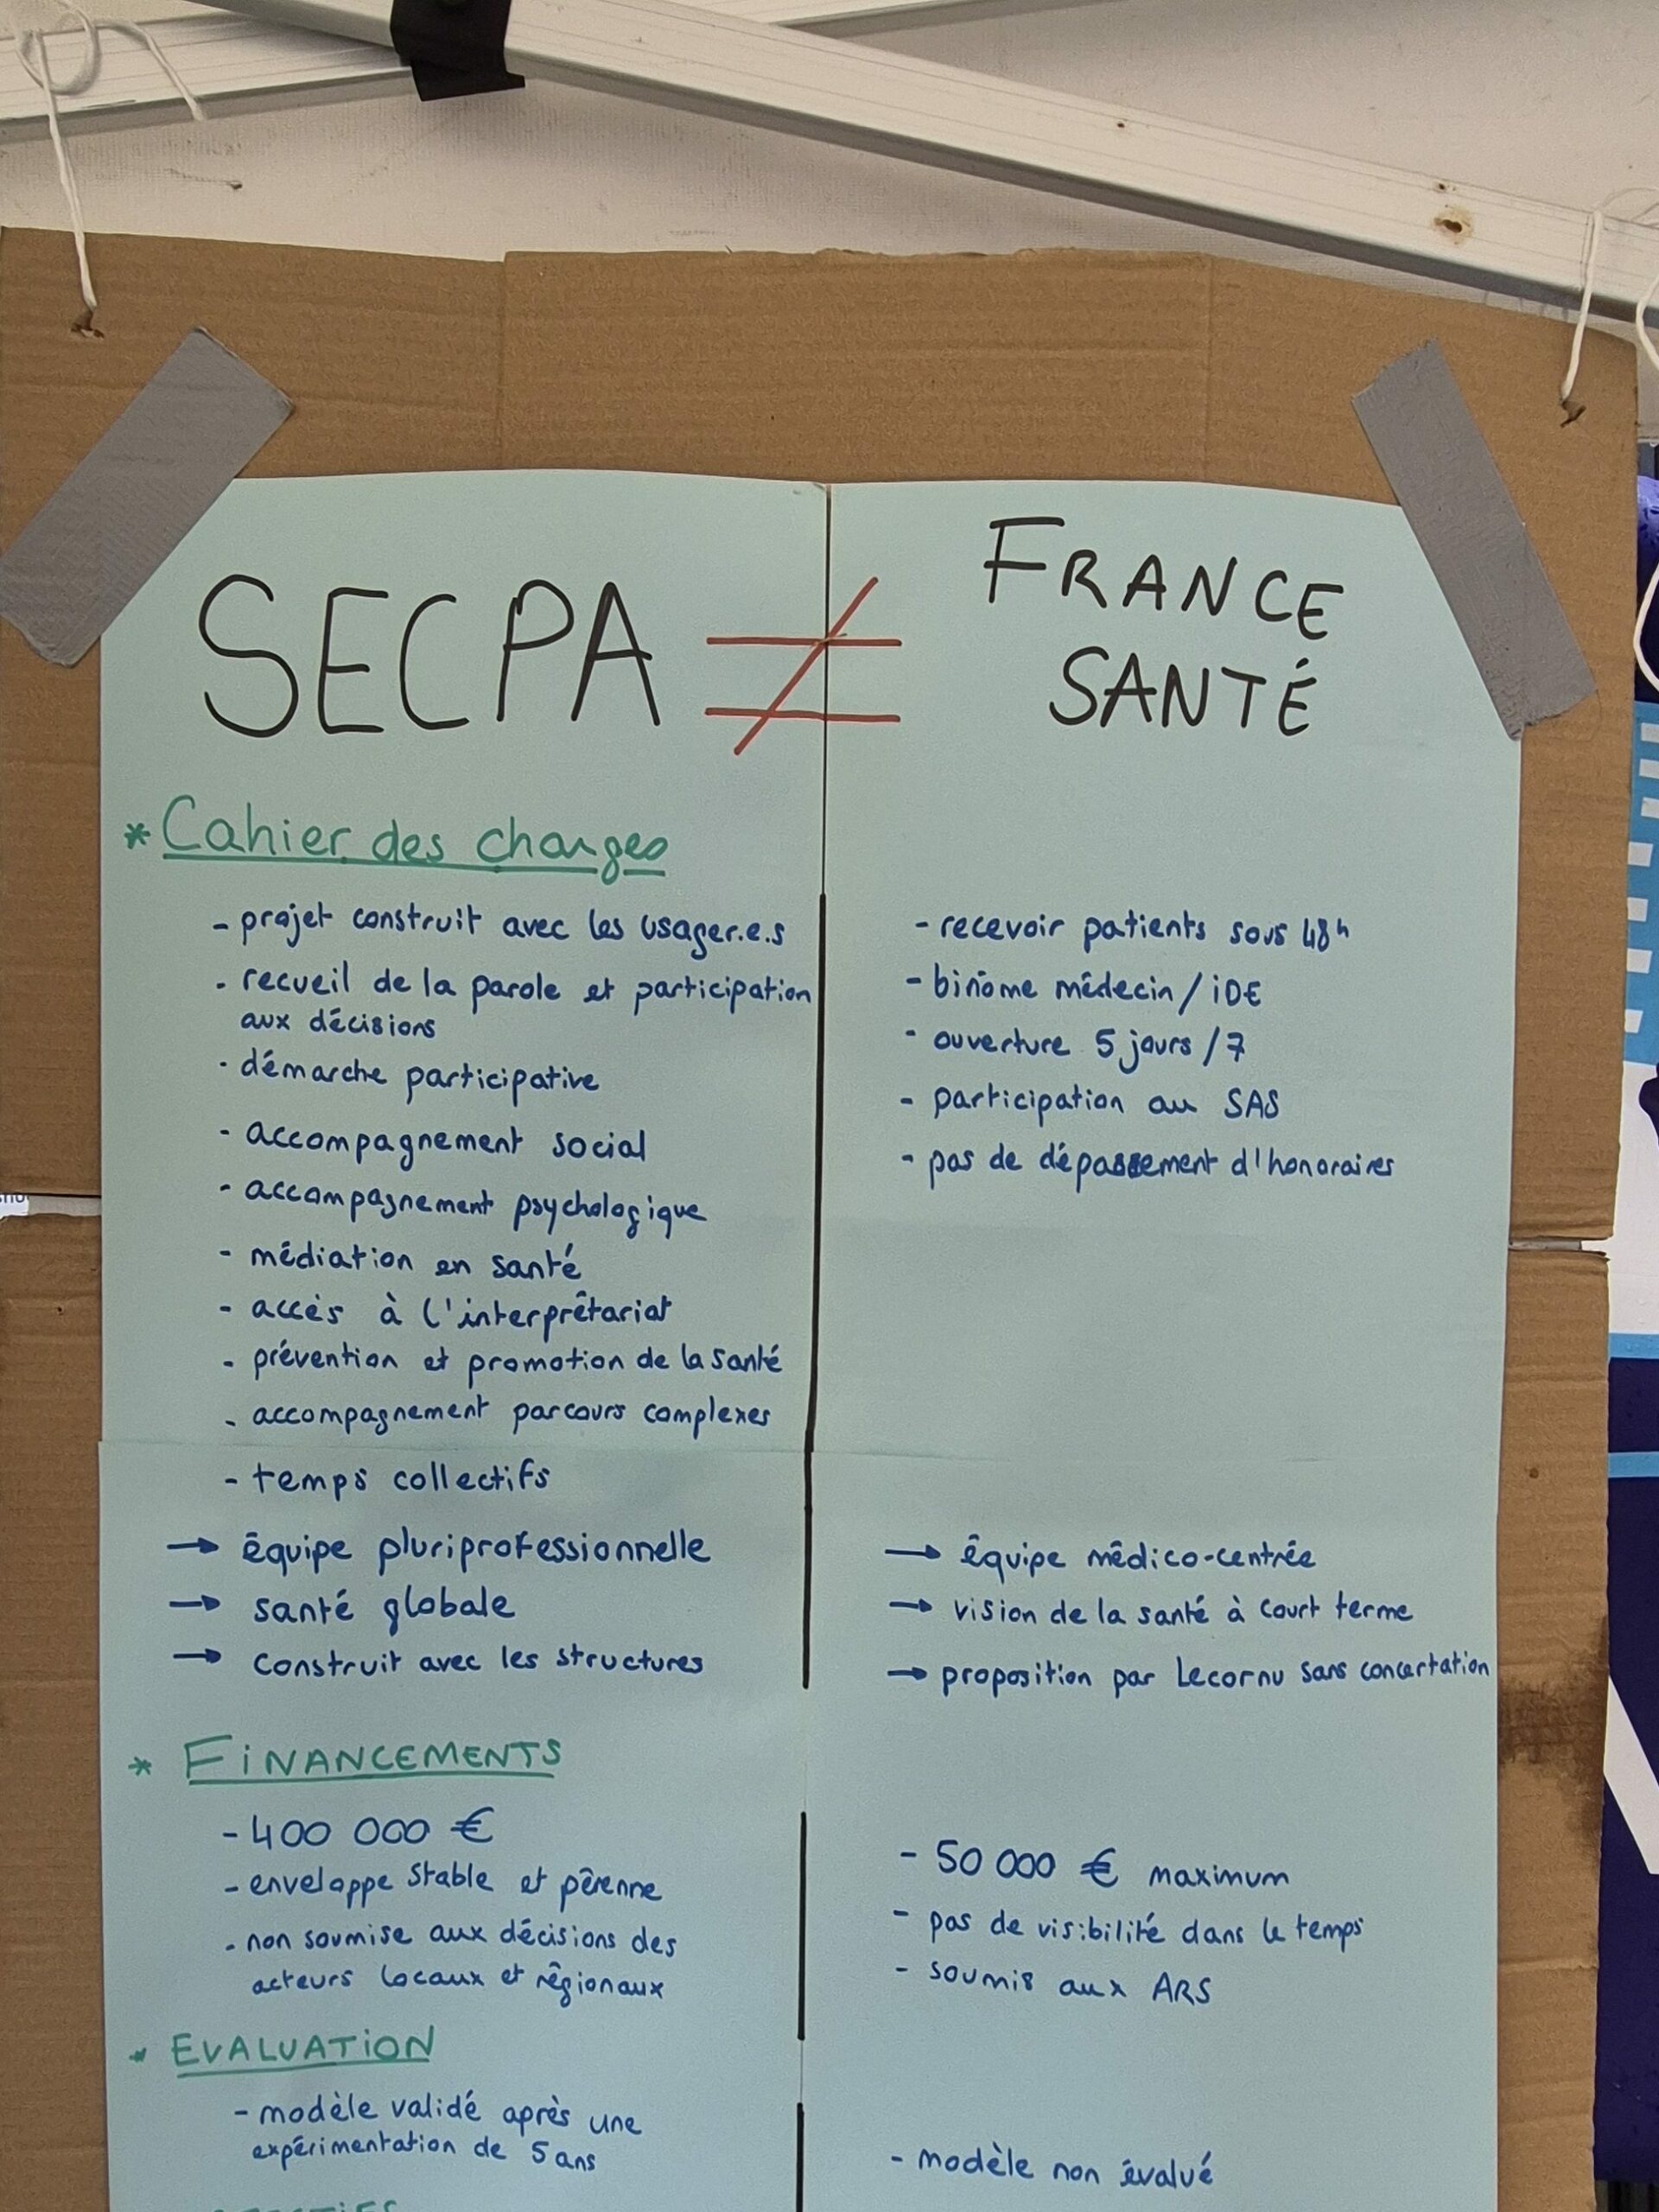 SECPA ≠ FRANCE
SANTÉ
* Cahier des charges
- projet construit avec les usager.e.s
- recueil de la parole et participation
aux décisions
- démarche participative
- accompagnement social
- accompagnement psychologique
- médiation en santé
- accès à l'interprêtariat
- prévention et promotion de la santé
- accompagnement parcours complexes
- temps collectifs
→ équipe pluriprofessionnelle
→ santé globale
→ construit avec les structures
- recevoir patients sous 48h
- binôme médecin / iDE
- ouverture 5 jours / 7
- participation au SAS
- pas de dépassement d'honoraires
→ équipe médico-centrée
→ vision de la santé à court terme
→ proposition par Lecornu sans concertation
* FiNANCEMENTS
- 400 000 €
- enveloppe stable et pérenne
- non soumise aux décisions des
acteurs locaux et régionaux
- 50 000 € maximum
- pas de visibilité dans le temps
- soumis aux ARS
* EVALUATiON
- modèle validé après une
expérimentation de 5 ans
- modèle non évalué